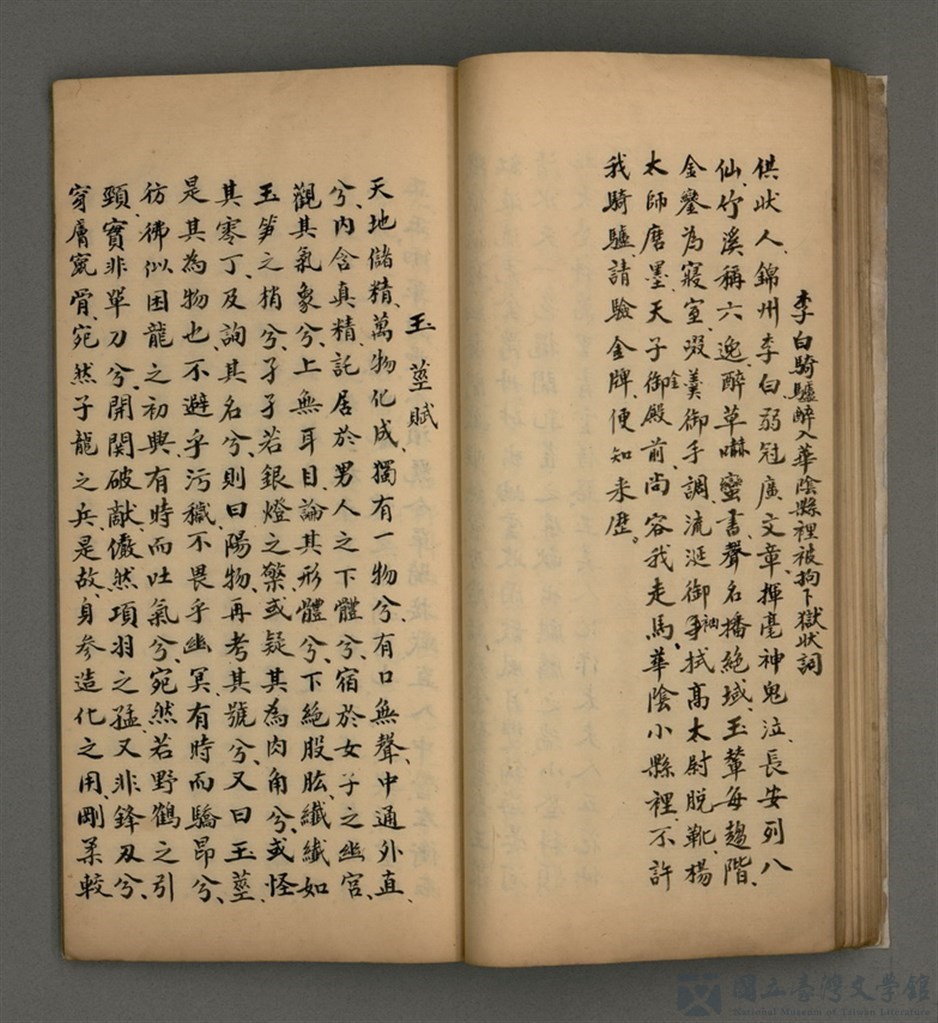 李白騎驢醉入華陰縣裡被拘下獄狀詞
供狀人、錦州李白、弱冠廣文章、揮毫神鬼泣、長安列八
仙、竹溪稱六逸、醉草嚇蠻書、聲名播絕域、玉輦每趨階、
金鑾為寢室、啜羹御手調、流涎御袖拭、高太尉脫靴、楊
太師磨墨、天子御殿前、尚容我走馬、華陰小縣裡、不許
我騎驢、請驗金牌、便知來歷。
玉莖賦
天地儲精、萬物化成、獨有一物兮、有口無聲、中通外直
兮、內含真精、託居於男人之下體兮、宿於女子之幽宮、
觀其氣象兮、上無耳目、論其形體兮、下絕股肱、纖纖如
玉笋之梢兮、孑孑若銀燈之檠、或疑其為肉角兮、或怪
其零丁、及詢其名兮、則曰陽物、再考其號兮、又曰玉莖、
是其為物也、不避乎污穢、不畏乎幽冥、有時而驕昂兮、
彷彿似困龍之初興、有時而吐氣兮、宛然若野鶴之引
頸、實非單刀兮、開関破敵、儼然項羽之猛、又非鋒刃兮、
穿膚竄骨、宛然子龍之兵、是故、身參造化之用、剛柔較
國立臺灣文學館
National Museum of Taiwan Literature